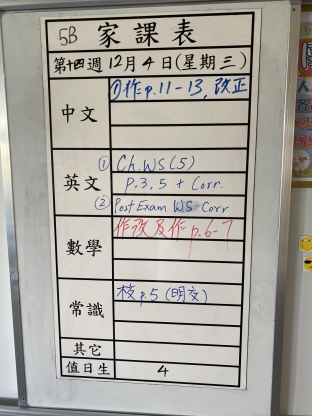 5B 家課表
第十四週 12月4日(星期三)
中文
①作p.11-13,改正
英文
① Ch.WS(5)
p.3,5 + Corr.
② Post Exam WS Corr
數學
作改及作p.6-7
常識
校p.5(明交)
其它
值日生 4